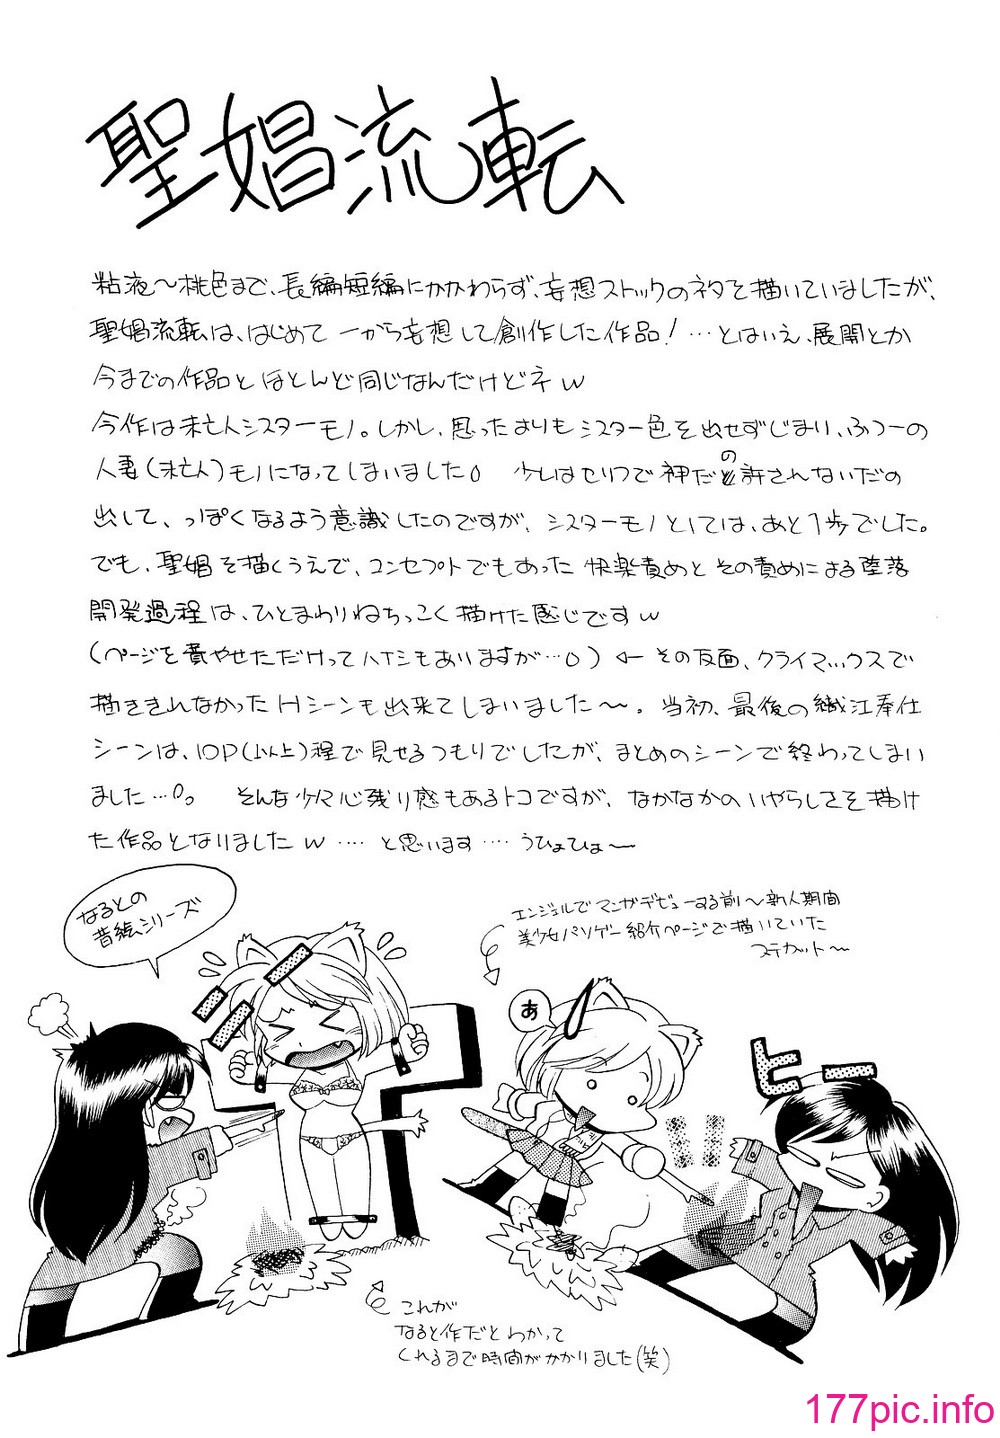 聖娼流転
粘液〜桃色まで、長編短編にかかわらず、妄想ストックのネタを描いていましたが、
聖娼流転は、はじめて一から妄想して創作した作品！…とはいえ、展開とか
今までの作品とほとんど同じなんだけどネw
今作は未亡人シスターモノ。しかし、思ったよりもシスター色を出せずじまり、ふつーの
人妻(未亡人)モノになってしまいました。 少しはセリフで神だの許されないだの
出して、っぽくなるよう意識したのですが、シスターモノとしては、あと1歩でした。
でも、聖娼を描くうえで、コンセプトでもあった快楽責めとその責めによる堕落
開発過程は、ひとまわりねちっこく描けた感じですw
(ページを費やせただけってハナシもありますが…。)←その反面、クライマックスで
描ききれなかったHシーンも出来てしまいました〜。当初、最後の織江奉仕
シーンは、10P(以上)程で見せるつもりでしたが、まとめのシーンで終わってしまい
ました…。 そんな少々心残り感もあるトコですが、なかなかのいやらしさを描け
た作品となりましたw …‥と思います…‥うひょひょ〜
なるとの
昔絵シリーズ
エンジェルでマンガデビューする前〜新人期間
美少女パソゲー紹介ページで描いていた
ステカット〜
あ
ヒー
!!
これが
なると作だとわかって
くれるまで時間がかかりました(笑)
177pic.info